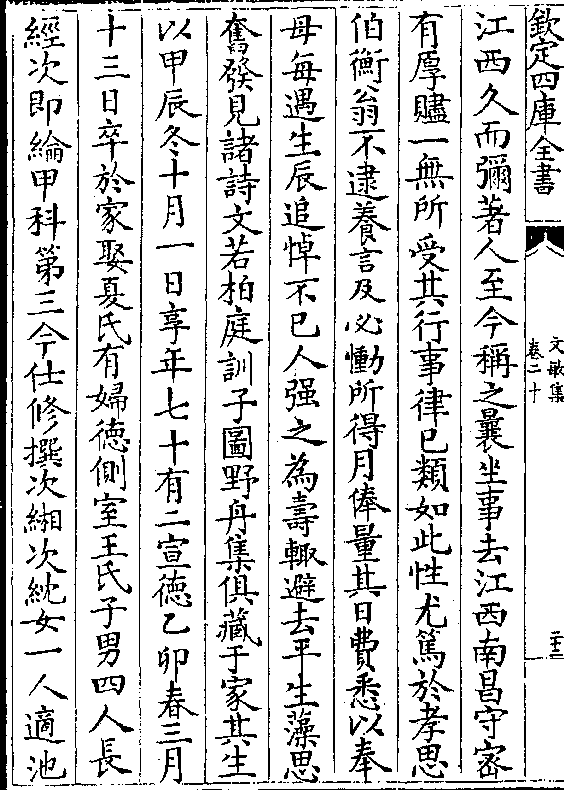 欽定四庫全書
文敏集
卷二十
二十三
江西久而彌著人至今稱之曩坐事去江西南昌守密
有厚贐一無所受其行事律已類如此性尤篤於孝思
伯衡翁不逮養言及必慟所得月俸量其日費悉以奉
母每遇生辰追悼不已人强之為壽輙避去平生藻思
奮發見諸詩文若柏庭訓子圖野舟集俱藏于家其生
以甲辰冬十月一日享年七十有二宣徳乙卯春三月
十三日卒於家娶夏氏有婦徳側室王氏子男四人長
經次即綸甲科第三今仕修撰次緗次紞女一人適池